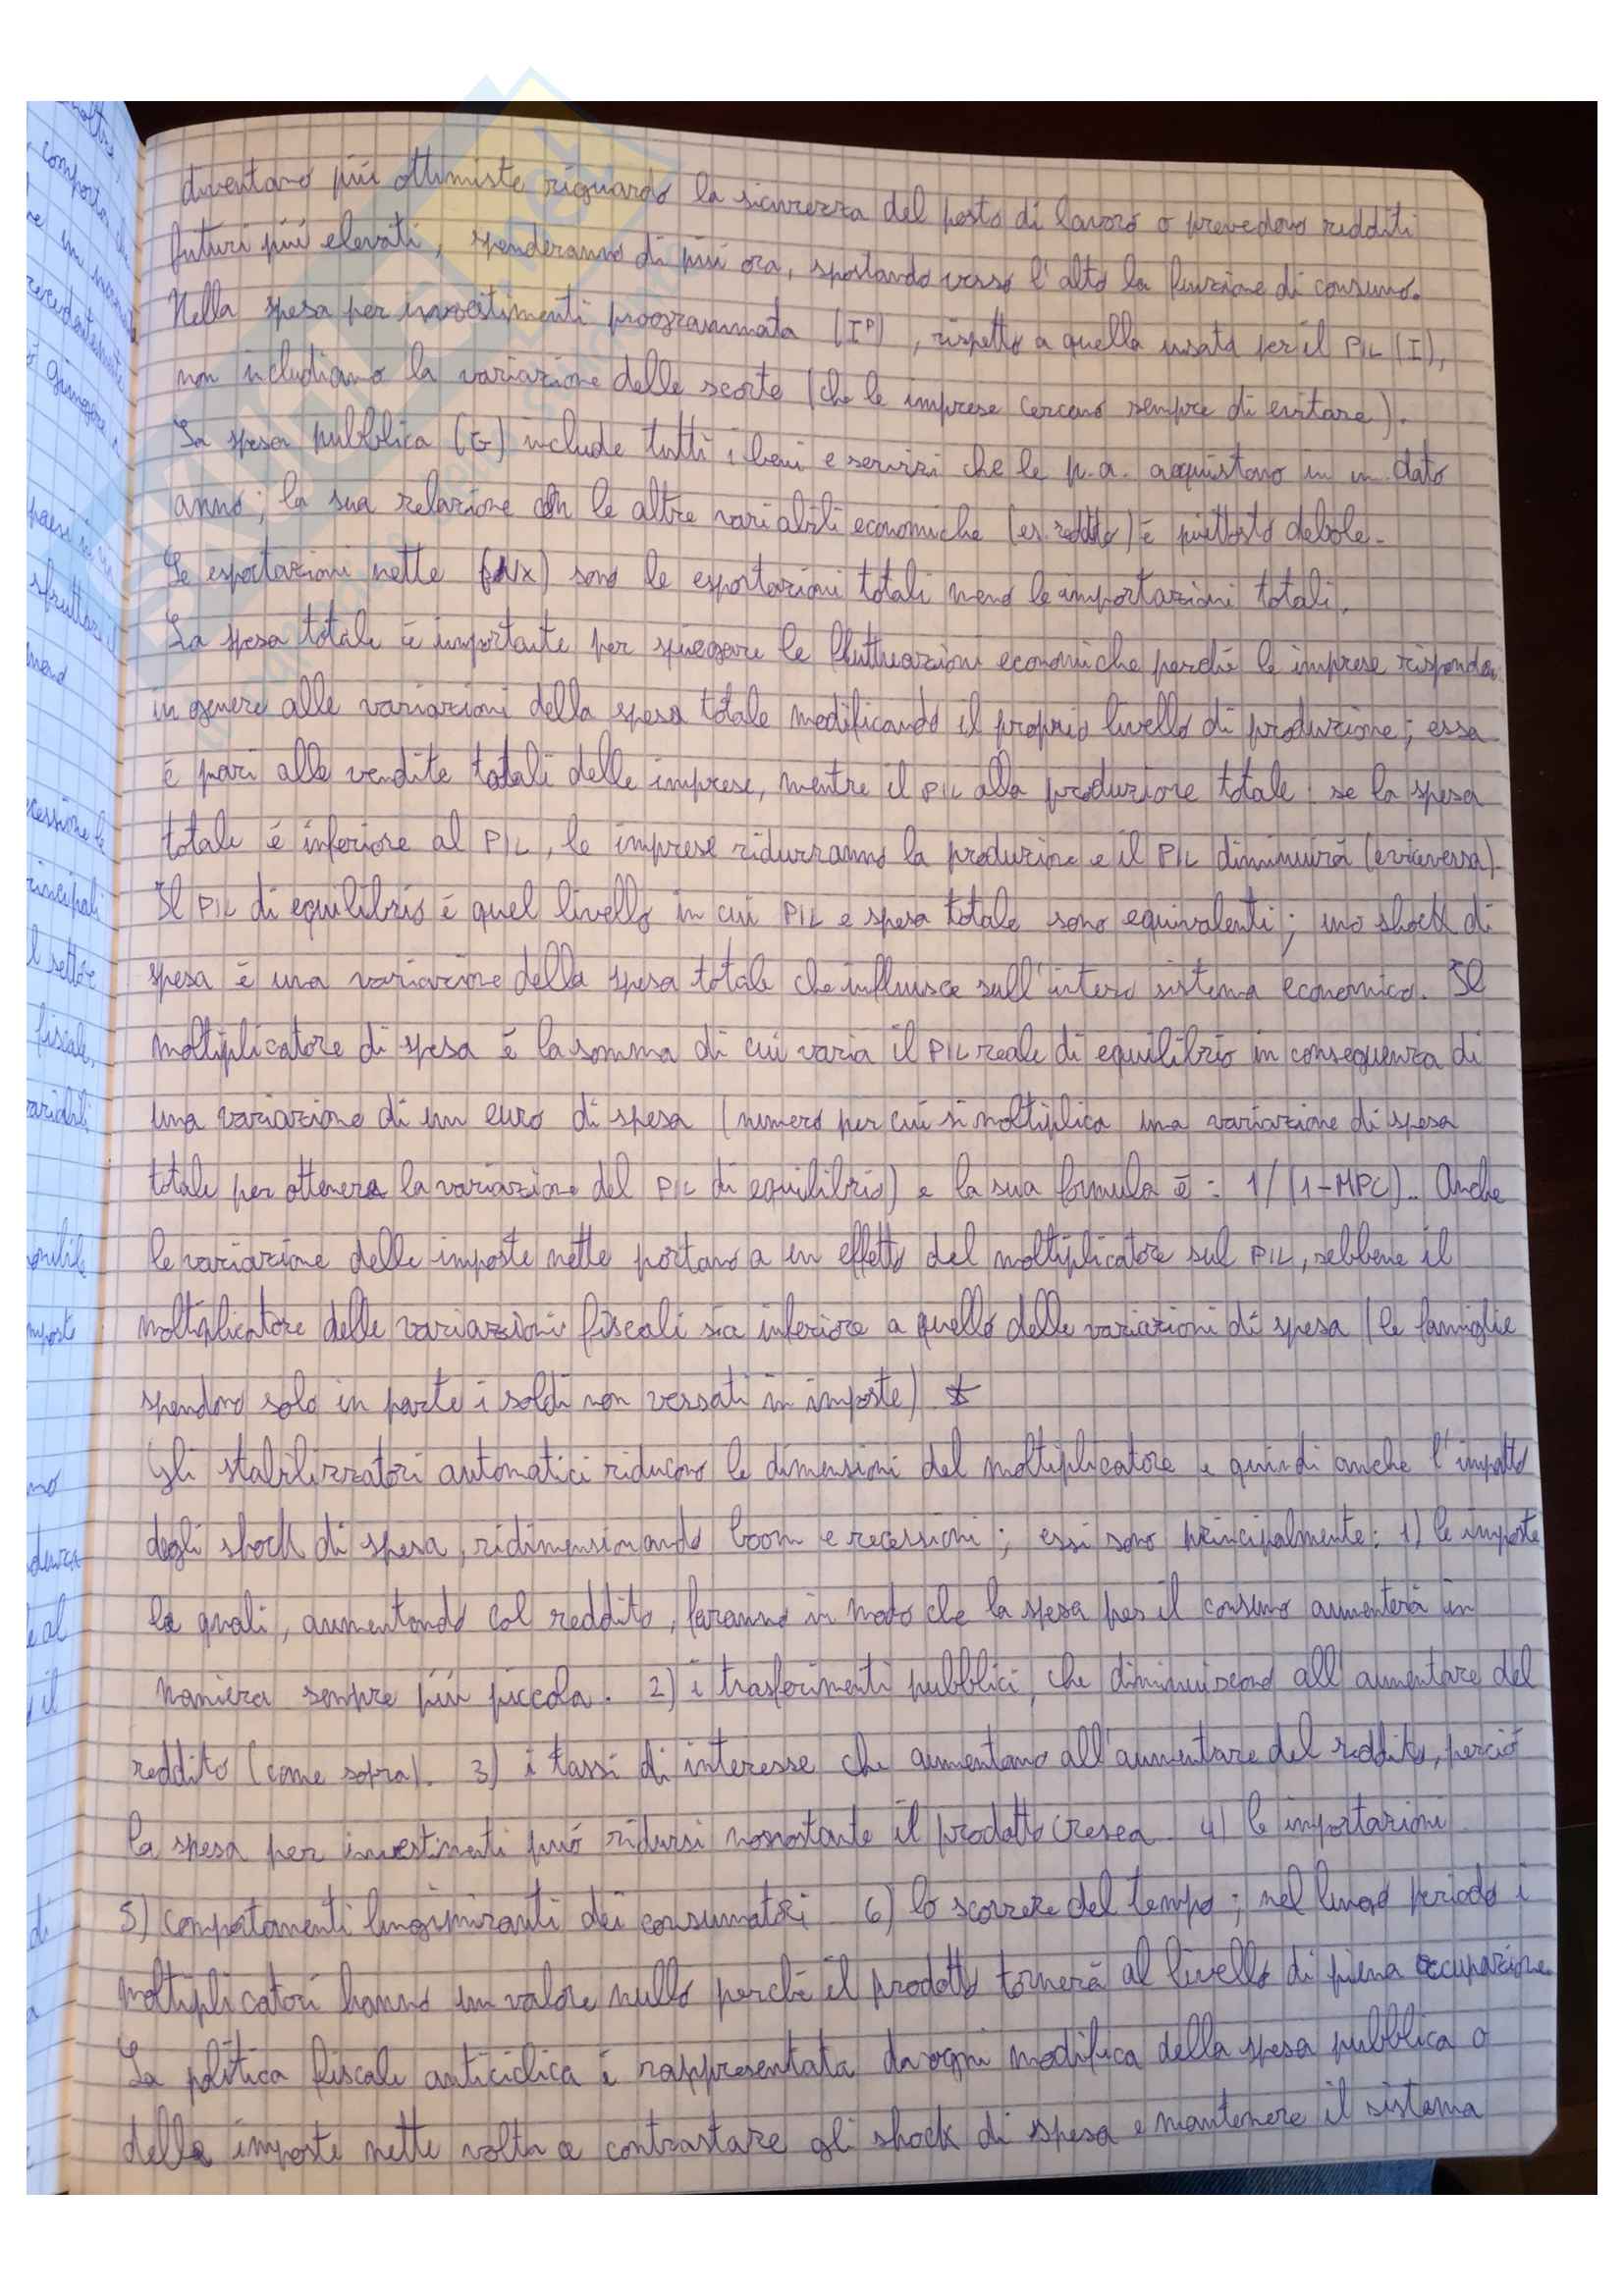 diventano più ottimiste riguardo la sicurezza del posto di lavoro o prevedono redditi
futuri più elevati, spenderanno di più ora, spostando verso l'alto la funzione di consumo.
Nella spesa per investimenti programmata (Iᵖ), rispetto a quella usata per il PIL (I),
non includiamo la variazione delle scorte (che le imprese cercano sempre di evitare).
La spesa pubblica (G) include tutti i beni e servizi che le p.a. acquistano in un dato
anno; la sua relazione con le altre variabili economiche (es. reddito) è piuttosto debole.
Le esportazioni nette (NX) sono le esportazioni totali meno le importazioni totali.
La spesa totale è importante per spiegare le fluttuazioni economiche perché le imprese rispondon
in genere alle variazioni della spesa totale modificando il proprio livello di produzione; essa
è pari alle vendite totali delle imprese, mentre il PIL alla produzione totale: se la spesa
totale è inferiore al PIL, le imprese ridurranno la produzione e il PIL diminuirà (e viceversa).
Il PIL di equilibrio è quel livello in cui PIL e spesa totale sono equivalenti; uno shock di
spesa è una variazione della spesa totale che influisce sull'intero sistema economico. Il
moltiplicatore di spesa è la somma di cui varia il PIL reale di equilibrio in conseguenza di
una variazione di un euro di spesa (numero per cui si moltiplica una variazione di spesa
totale per ottenere la variazione del PIL di equilibrio) e la sua formula è: 1/(1-MPC). Anche
le variazione delle imposte nette portano a un effetto del moltiplicatore sul PIL, sebbene il
moltiplicatore delle variazioni fiscali sia inferiore a quello delle variazioni di spesa (le famiglie
spendono solo in parte i soldi non versati in imposte) *
Gli stabilizzatori automatici riducono le dimensioni del moltiplicatore e quindi anche l'impatto
degli shock di spesa, ridimensionando boom e recessioni; essi sono principalmente: 1) le imposte
le quali, aumentando col reddito, faranno in modo che la spesa per il consumo aumenterà in
maniera sempre più piccola. 2) i trasferimenti pubblici, che diminuiscono all'aumentare del
reddito (come sopra). 3) i tassi di interesse che aumentano all'aumentare del reddito, perciò
la spesa per investimenti può ridursi nonostante il prodotto cresca. 4) le importazioni
5) comportamenti lungimiranti dei consumatori 6) lo scorrere del tempo; nel lungo periodo i
moltiplicatori hanno un valore nullo perché il prodotto tornerà al livello di piena occupazione
La politica fiscale anticiclica è rappresentata da ogni modifica della spesa pubblica o
delle imposte nette volta a contrastare gli shock di spesa e mantenere il sistema